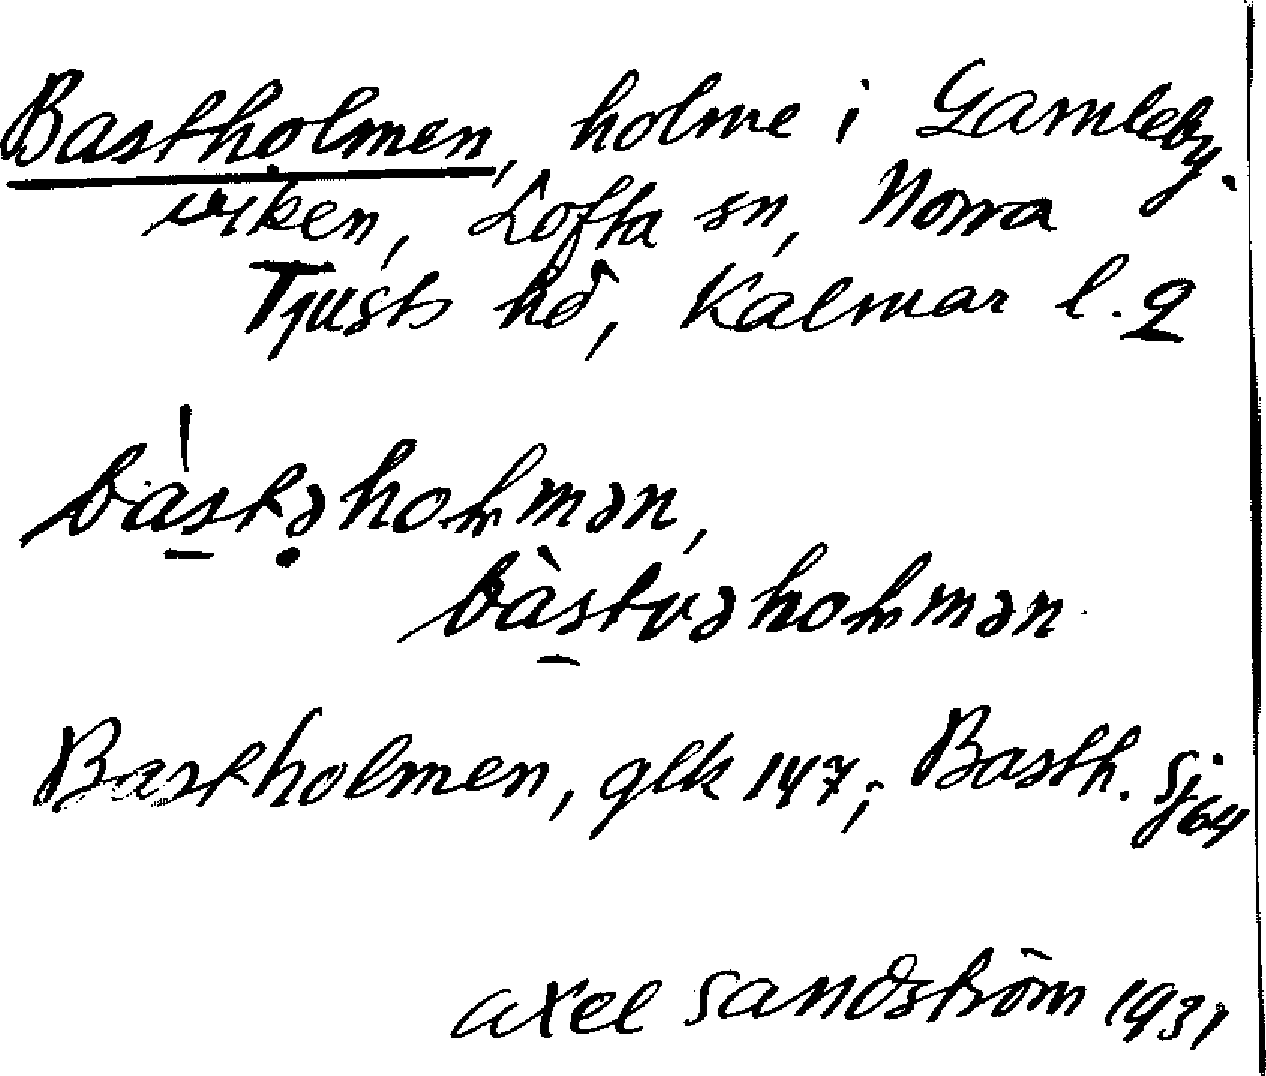 Bastholmen, holme i Gamleby-
viken, Lofta sn, Norra
Tjusts hd, Kalmar l.
bàstəholmən,
bàstvəholmən
Bastholmen, glk 147; Basth. Sj 64
Axel Sandström 1931